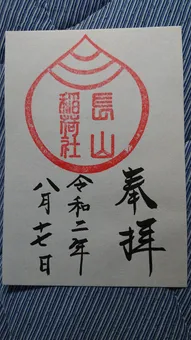 奉拝
長山
稲荷社
令和二年
八月十七日